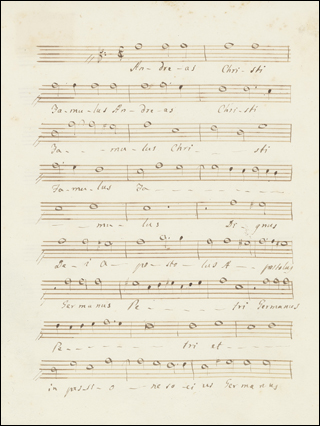 An-dre-as Chri-sti
Fa-mu-lus An-dre-as Christi
Fa - - - mu-lus Chri - - sti
Fa-mu-lus Fa - - - - - - -
- - - mu - lus Di-gnus
De-i A-po-sto-lus A-postolus
Germanus Pe - - - tri Germanus
Pe - - - - - - - - tri et - - -
in pas-si-o - ne so-ci-us Germanus